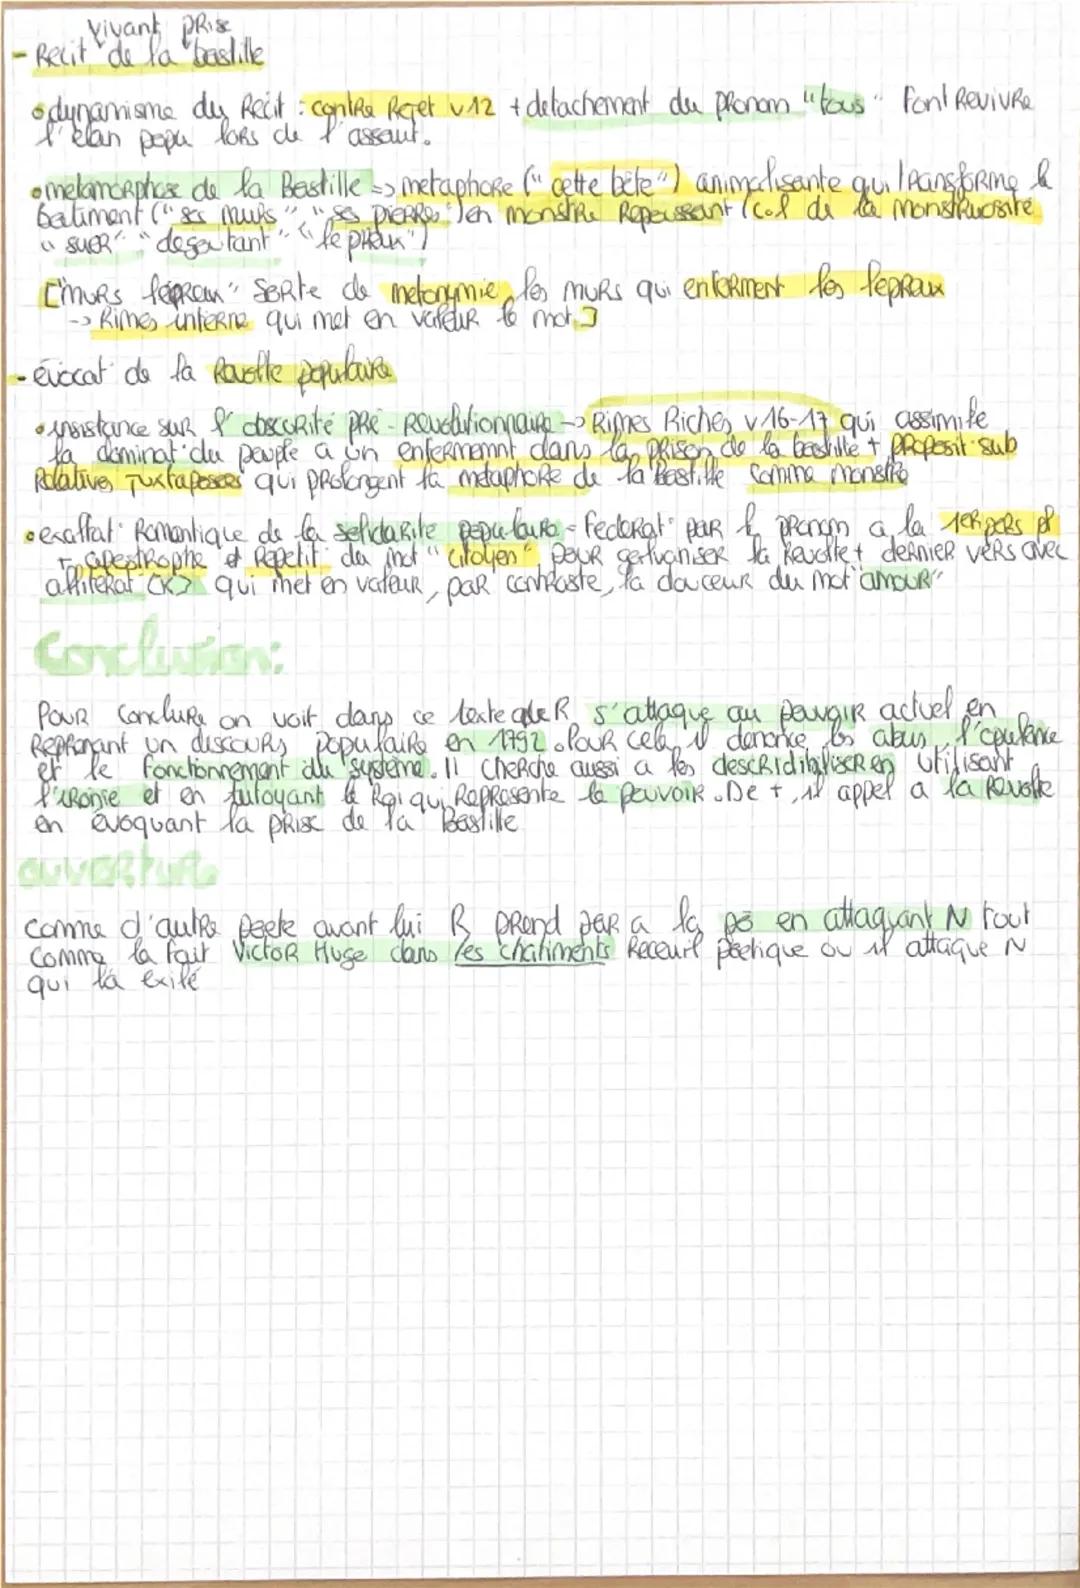 vivant prise
- Recit de la bastille
• dynamisme du Recit : contre Rejet v 12 + detachement du pronom "tous" Font Revivre
l'élan popu lors de l'assaut.
• metamorphose de la Bastille => metaphore ("cette bête") animalisante qui transforme le
batiment ("ses murs", "ses pierres") en monstre Repoussant (C.l de la monstruosité
"suer" "degoutant" "lepreux")
["murs lépreux" sorte de metonymie les murs qui enferment les lepreux
-> Rimes interne qui met en valeur le mot]
- évocat° de la Revolte populaire
• insistance sur l'obscurité pré-Revolutionnaire -> Rimes Riches v 16-17 qui assimile
la dominat° du peuple a un enfermemnt dans la prison de la bastille + proposit° sub
Relatives juxtaposees qui prolongent la métaphore de la Bastille comme monstre
• exaltat° Romantique de la solidarite populaire = federat° par le pronom a la 1er pers pl
+ apostrophe et Repetit° du mot "citoyen" pour galvaniser la Revolte + dernier vers avec
alliterat° [K] qui met en valeur, par contraste, la douceur du mot "amour"
Conclusion:
Pour conclure on voit dans ce texte que R s'attaque au pouvoir actuel en
Reprenant un discours populaire en 1792. Pour cela, il denonce les abus, l'opulence
et le fonctionnement du système. Il cherche aussi a les descriditaliser en utilisant
l'ironie et en tutoyant le Roi qui Represente le pouvoir. De +, il appel a la Revolte
en évoquant la prise de la Bastille
ouverture
comme d'autre poete avant lui R prend par a la po en attaquant N tout
comme la fait Victor Hugo dans les chatiments Receuil poetique ou il attaque N
qui l'a exilé